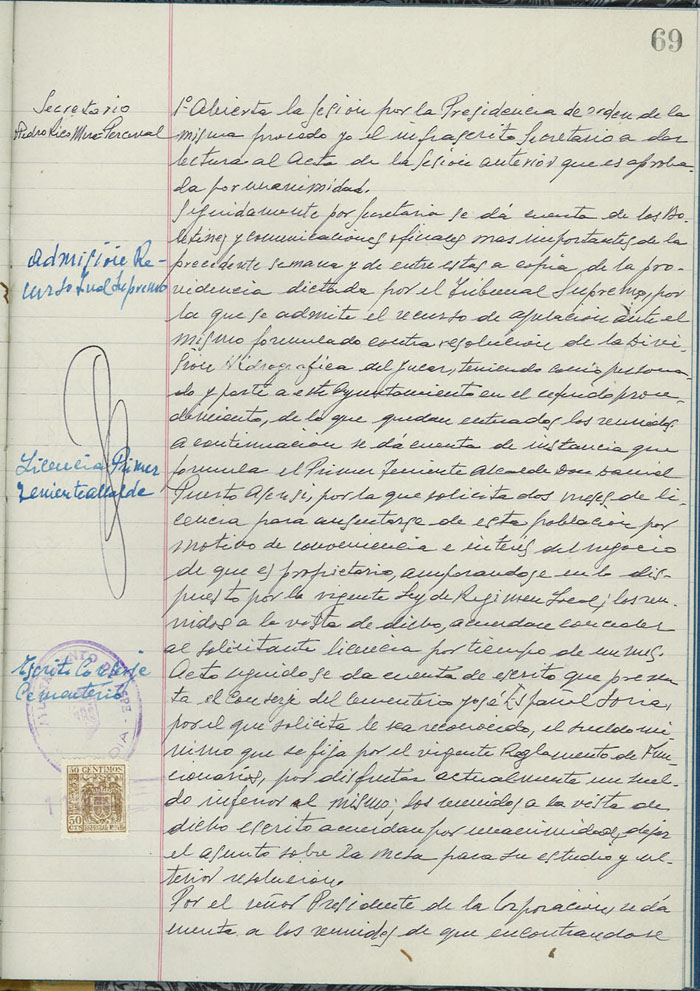 69
Secretario
Pedro Rico Mira Perceval
1º Abierta la sesión por la Presidencia de orden de la
misma procedo yo el infrascrito Secretario a dar
lectura al Acta de la sesión anterior que es aproba-
da por unanimidad.
Seguidamente por Secretaria se dá cuenta de los Bo-
letines y comunicaciones oficiales mas importantes de la
precedente semana y de entre estas a copia de la pro-
videncia dictada por el Tribunal Supremo, por
la que se admite el recurso de apelación ante el
mismo formulado contra resolucion de la Divi-
sión Hidrografica del Jucar, teniendo como persona-
do y parte a este Ayuntamiento en el referido proce-
dimiento, de lo que quedan enterados los reunidos
a continuacion se dá cuenta de instancia que
formula el Primer Teniente Alcalde Don Daniel
Puerto Asensi, por la que solicita dos meses de li-
cencia para ausentarse de esta población por
motivo de conveniencia e interés del negocio
de que es propietario, amparandose en lo dis-
puesto por la vigente Ley de Regimen Local; los reu-
nidos a la vista de dicho, acuerdan conceder
al solicitante licencia por tiempo de un mes.
Acto seguido se da cuenta de escrito que presen-
ta el Conserje del cementerio José Español Soria,
por el que solicita le sea reconocido, el sueldo mi-
nimo que se fija por el vigente Reglamento de Fun-
cionarios, por disfrutar actualmente un suel-
do inferior al mismo; los reunidos a la vista de
dicho escrito acuerdan por unanimidad, dejar
el asunto sobre la mesa para su estudio y ul-
terior resolucion.
Por el señor Presidente de la Corporación, se da
cuenta a los reunidos de que encontrandose
Admisión Re-
curso Tral Supremo
Licencia Primer
Teniente alcalde
Escrito Conserje
Cementerio
AYUNTAMIENTO DE
50 CENTIMOS
50
CTS
ESPECIAL MOVIL